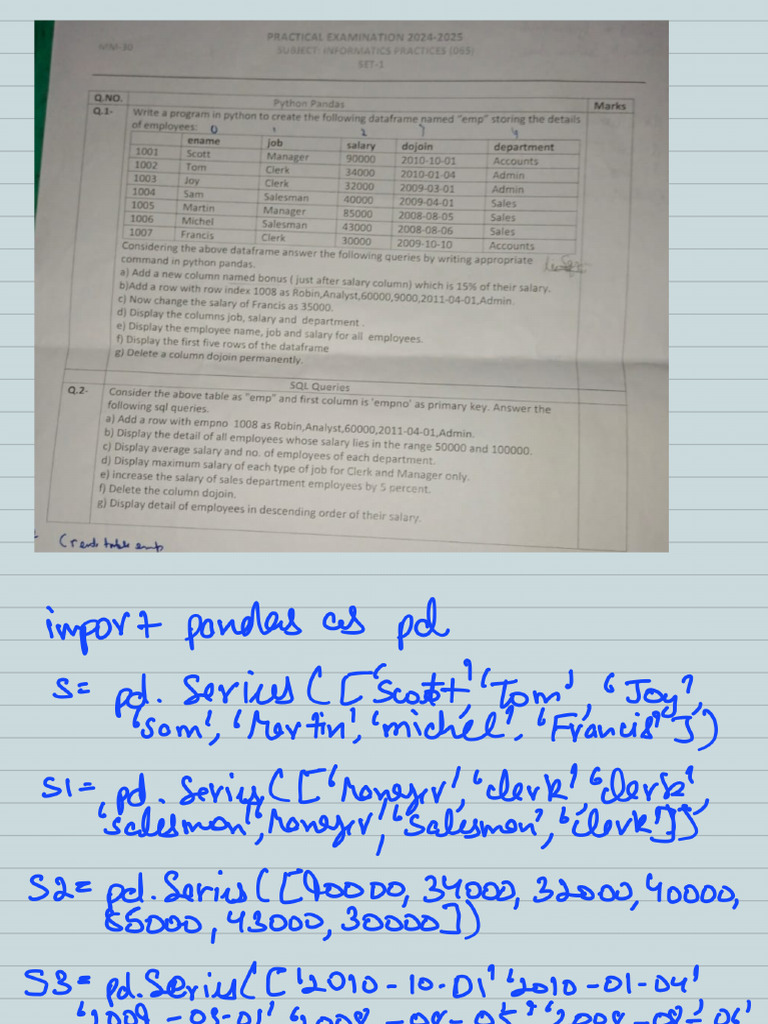 PRACTICAL EXAMINATION 2024-2025
MM-30
SUBJECT: INFORMATICS PRACTICES (065)
SET-1
Q.NO. Python Pandas Marks
Q.1- Write a program in python to create the following dataframe named "emp" storing the details
of employees:
0 1 2 3 4
ename job salary dojoin department
1001 Scott Manager 90000 2010-10-01 Accounts
1002 Tom Clerk 34000 2010-01-04 Admin
1003 Joy Clerk 32000 2009-03-01 Admin
1004 Sam Salesman 40000 2009-04-01 Sales
1005 Martin Manager 85000 2008-08-05 Sales
1006 Michel Salesman 43000 2008-08-06 Sales
1007 Francis Clerk 30000 2009-10-10 Accounts
Considering the above dataframe answer the following queries by writing appropriate
command in python pandas.
a) Add a new column named bonus ( just after salary column) which is 15% of their salary.
b)Add a row with row index 1008 as Robin,Analyst,60000,9000,2011-04-01,Admin.
c) Now change the salary of Francis as 35000.
d) Display the columns job, salary and department .
e) Display the employee name, job and salary for all employees.
f) Display the first five rows of the dataframe
g) Delete a column dojoin permanently.
SQL Queries
Q.2- Consider the above table as "emp" and first column is 'empno' as primary key. Answer the
following sql queries.
a) Add a row with empno 1008 as Robin,Analyst,60000,2011-04-01,Admin.
b) Display the detail of all employees whose salary lies in the range 50000 and 100000.
c) Display average salary and no. of employees of each department.
d) Display maximum salary of each type of job for Clerk and Manager only.
e) increase the salary of sales department employees by 5 percent.
f) Delete the column dojoin.
g) Display detail of employees in descending order of their salary.
Create table emp
import pandas as pd
S= pd. Series ( ['Scott', 'Tom', 'Joy',
'Sam', 'Martin', 'michel', 'Francis'])
S1= pd. Series ( ['Manager', 'clerk', 'clerk',
'salesman', 'Manager', 'Salesman', 'clerk'])
S2= pd. Series ( [90000, 34000, 32000, 40000,
85000, 43000, 30000])
S3= pd. Series ( ['2010-10-01' '2010-01-04'